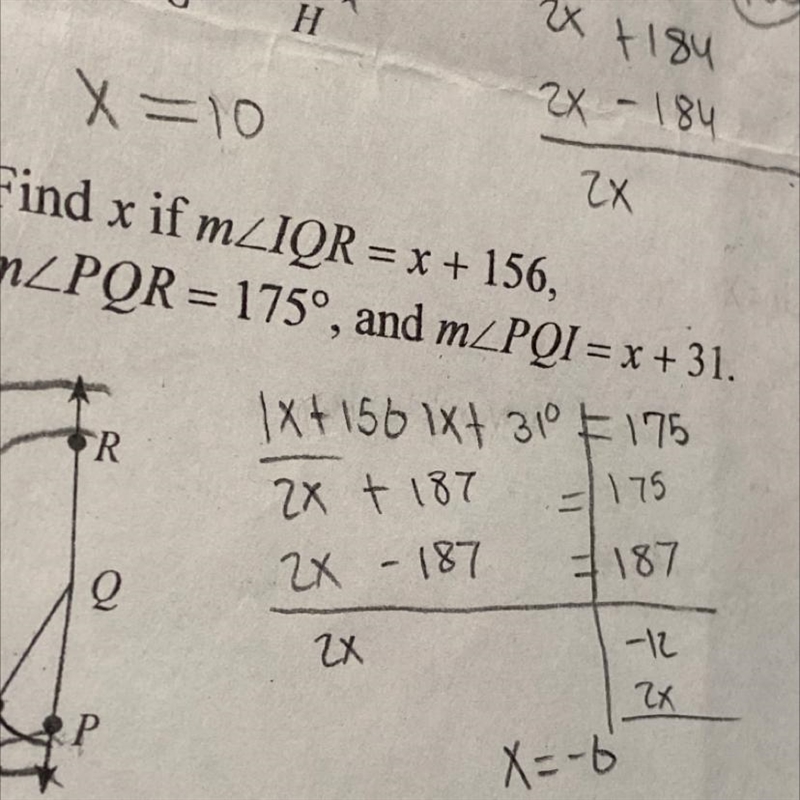 H
2x + 184
2x - 184
2x
x = 10
Find x if m∠IQR = x + 156,
m∠PQR = 175°, and m∠PQI = x + 31.
1x + 156 1x + 31° = 175
2x + 187 = 175
2x - 187 = 187
2x -12
2x
x = -6
R
Q
P